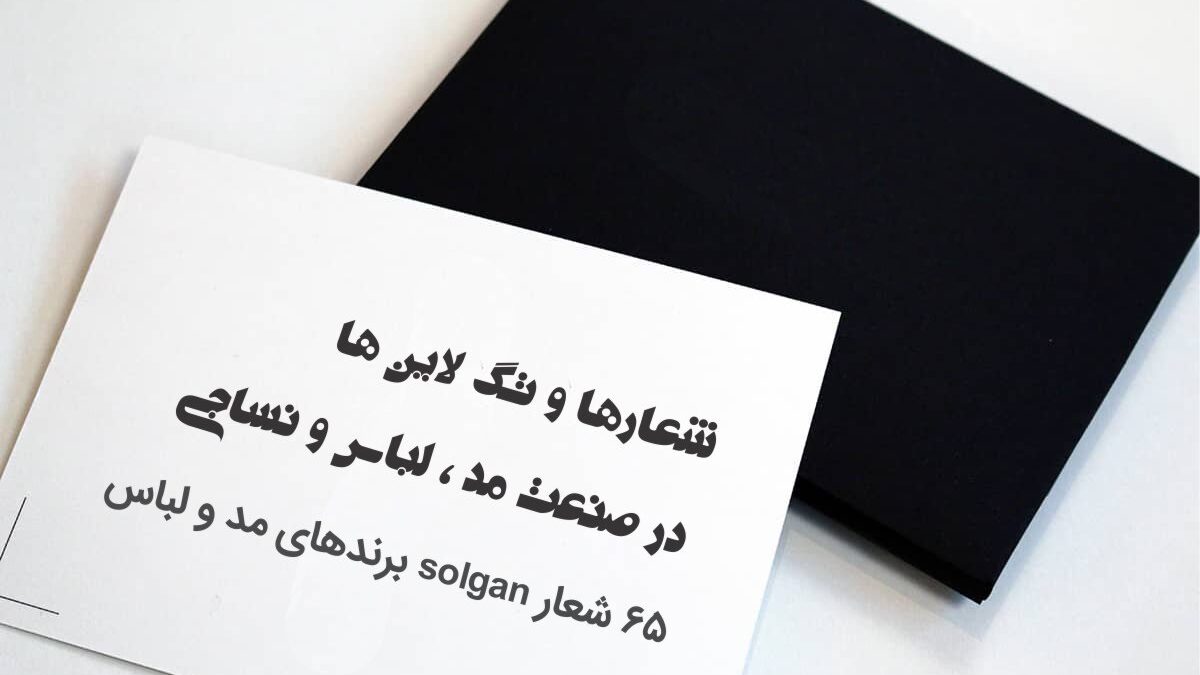 شعارها و تگ لاین ها
در صنعت مد ، لباس و نساجی
۶۵ شعار solgan برندهای مد و لباس